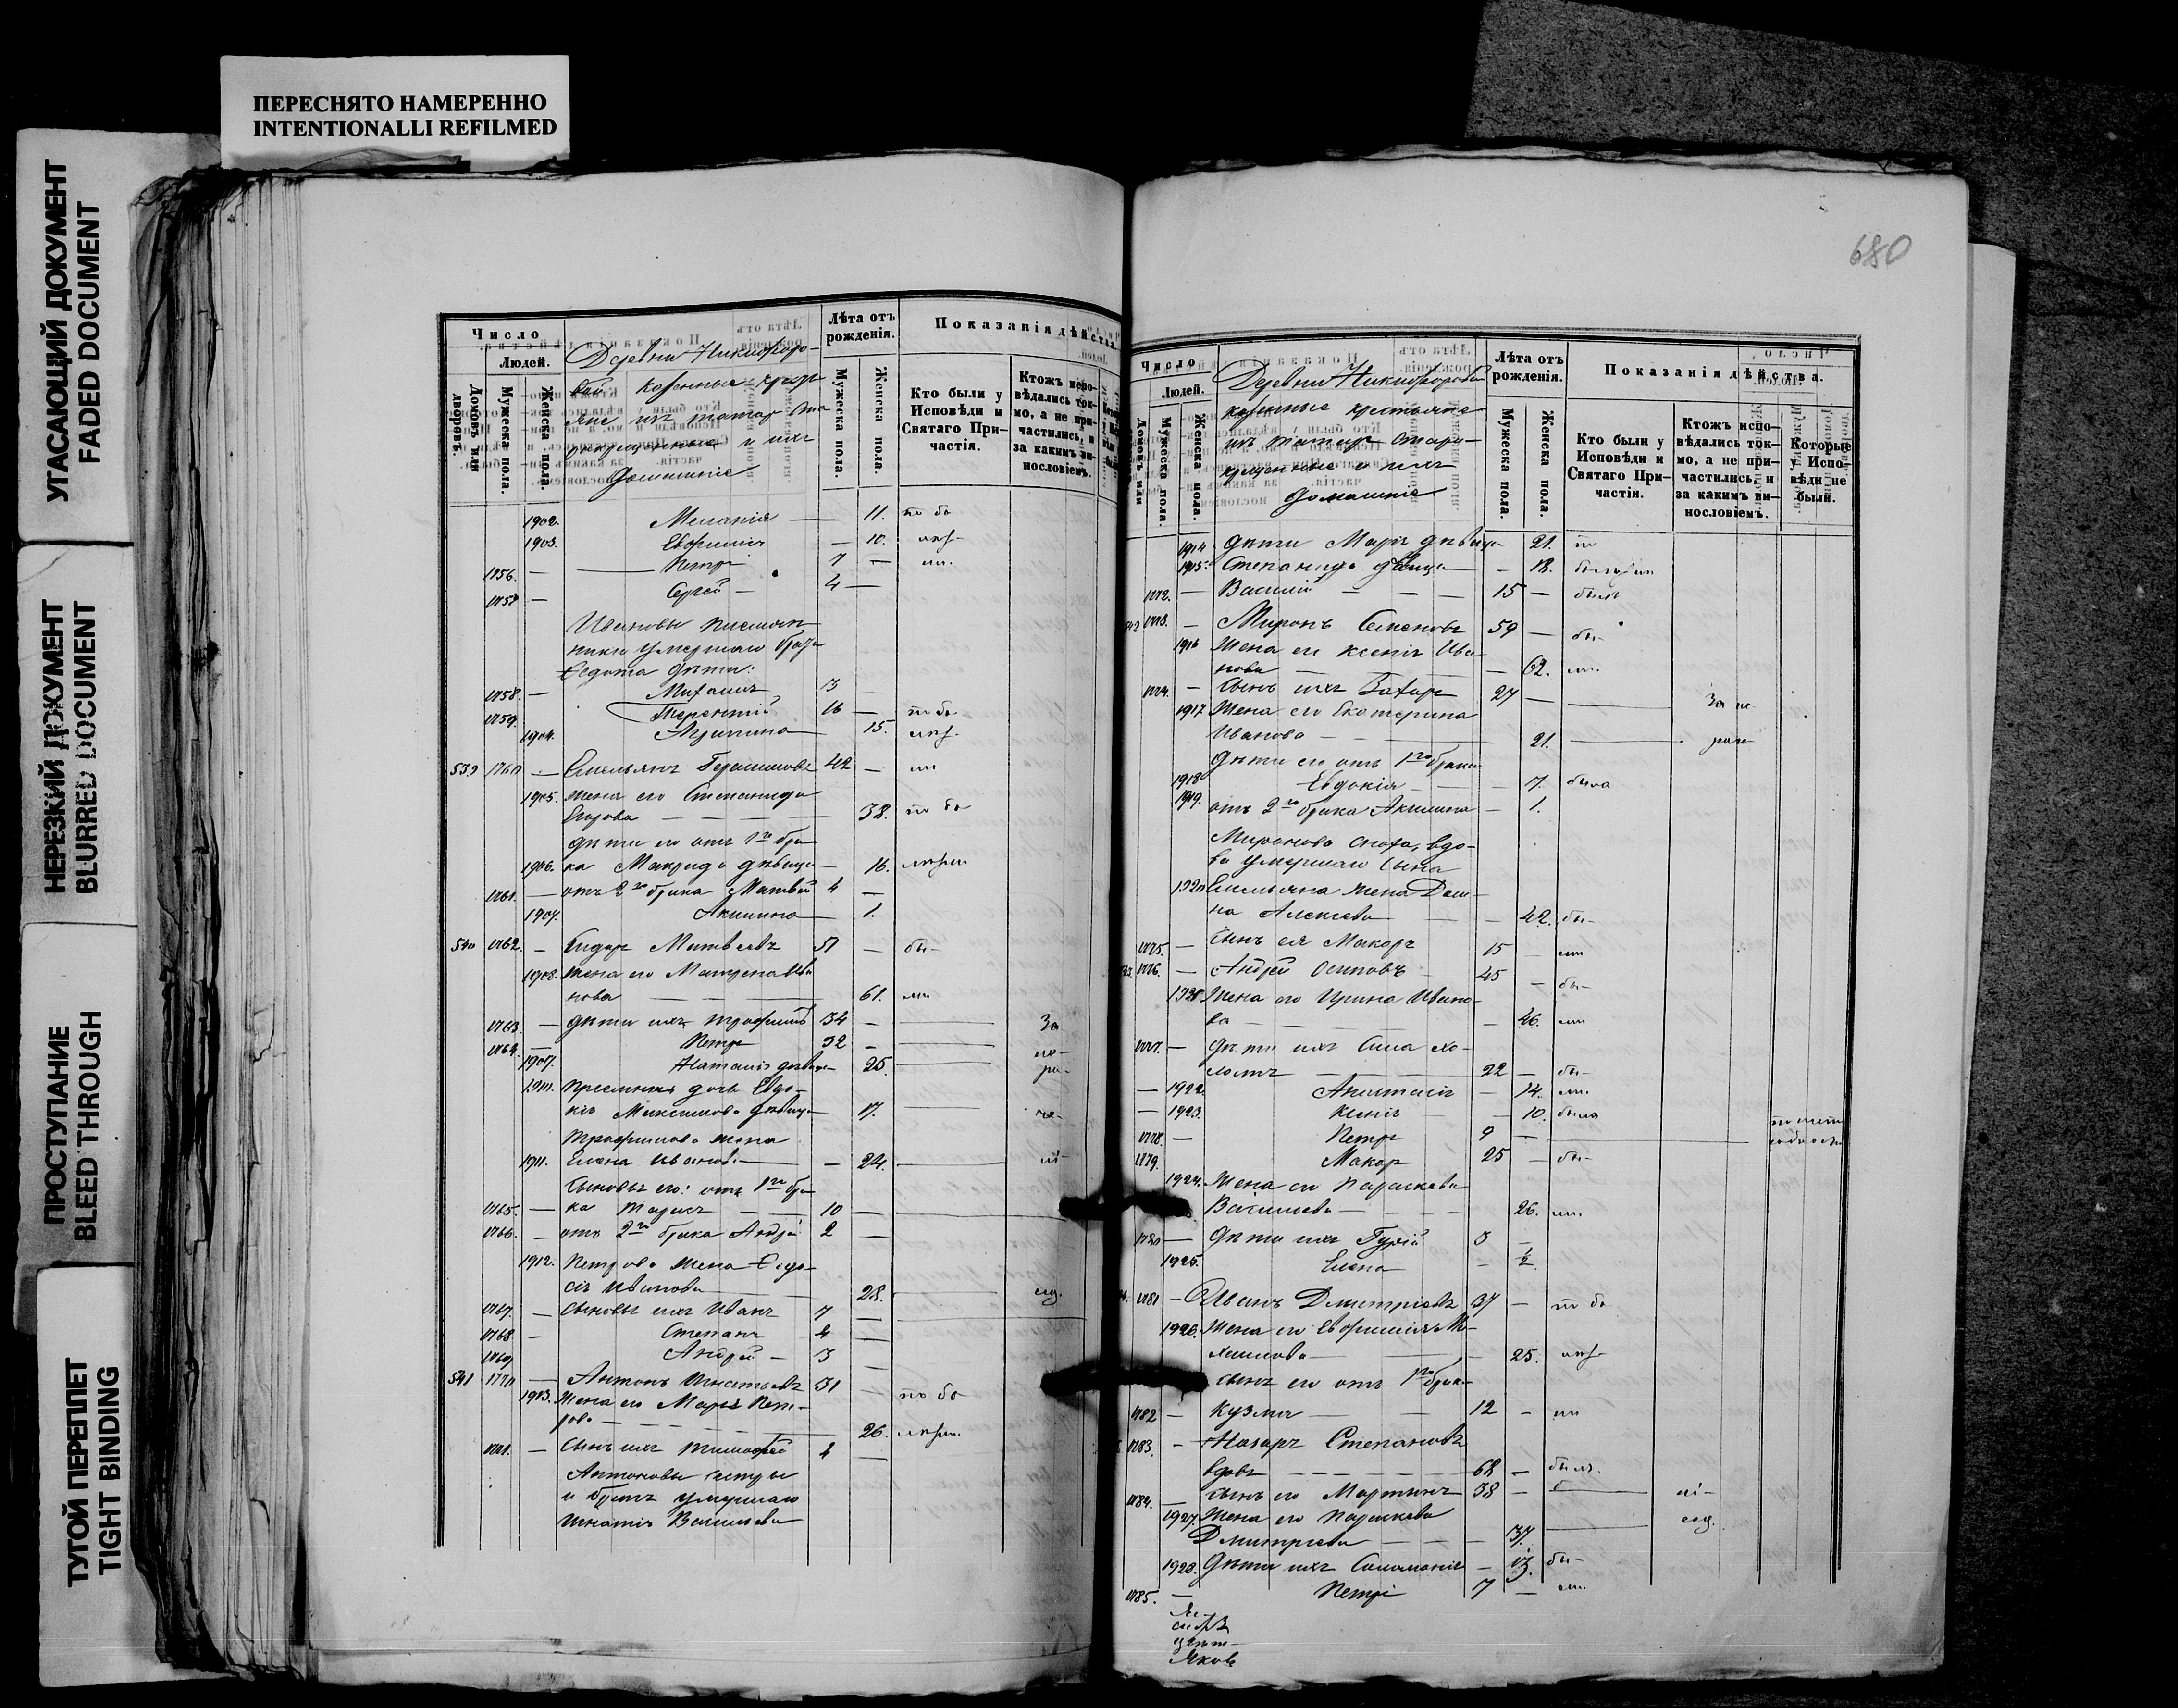 ПЕРЕСНЯТО НАМЕРЕННО
INTENTIONALLI REFILMED
УГАСАЮЩИЙ ДОКУМЕНТ
FADED DOCUMENT
НЕРЕЗКИЙ ДОКУМЕНТ
BLURRED DOCUMENT
ПРОСТУПАНИЕ
BLEED THROUGH
ТУГОЙ ПЕРЕПЛЕТ
TIGHT BINDING
Число
Людей.
Домовъ или дворовъ.
Мужеска пола.
Женска пола.
Деревни Никифоро-
вой казенные крест
яне изъ татар ста
рокрещенные и ихъ
домашніе
Лѣта отъ рожденія.
Мужеска пола.
Женска пола.
Показанія дѣйства
Кто были у Исповѣди и Святаго При-частія.
Ктожъ испо-вѣдались ток-мо, а не при-частились, и за какимъ ви-нословіемъ.
1902. Меланія — 11.
1903. Евфимія — 10.
1756. — Петръ 7 —
1757 — Сергей — 4 —
Ивановы племян
ники умершаго брата
Федота дѣти:
1758. — Михаилъ 13
1759. Терентій 16 —
1904. Агрипина 15.
539 1760 — Емельянъ Герасимовъ 42 —
1905. жена его Степанида
Егорова — 38.
дѣти его отъ 1го бра
1906. ка Макрида дѣвица — 16.
1761. — отъ 2го брака Матвей 4 —
1907. Акилина — 1.
540 1762. — Сидоръ Матвеевъ 51 — бы-
1908. жена его Матрена Ива
нова — 61. ли
1763. — дѣти ихъ Трофимъ 34 — За
1764. — Петръ 32 —
1909. Наталія дѣвица — 25.
1910. пріемышъ дочь Евдо-
кія Максимова дѣвица — 17.
Трофимова жена
1911. Елена Иванова — 24.
Сыновья его: отъ 1го бра
1765. — ка Тарасъ — 10 —
1766. — отъ 2го брака Андрей 2 —
1912. Петрова жена Федо-
сія Иванова — 28.
1767. — сыновья ихъ Иванъ 7 —
1768. — Степанъ 4 —
1769 Андрей — 3 —
541 1770 — Антонъ Игнатьевъ 31 —
1913. Жена его Марья Пет-
рова — 26.
1771. — сынъ ихъ Тимофей 4 —
Антоновы сестры
и братъ умершаго
Игнатія Васильева
680
Число
Людей.
Домовъ или
Мужеска пола.
Женска пола.
Деревни Никифоровой
казенные крестьяне
изъ татаръ старо-
крещенные и ихъ
домашніе
Лѣта отъ рожденія.
Мужеска пола.
Женска пола.
Показанія дѣйства.
Кто были у Исповѣди и Святаго При-частія.
Ктожъ испо-вѣдались ток-мо, а не при-частились, и за какимъ ви-нословіемъ.
Которые у Испо-вѣди не были.
1914 дѣти Марья дѣвица 21.
1915. Степанида дѣвица — 18.
1772. — Василій — 15 — былъ
1773. — Миронъ Семеновъ 59 — бы-
1916 Жена его Ксенія Ива
нова — 62. ли.
1774. — Сынъ ихъ Захаръ 27 — За не-
1917 Жена его Екатерина
Иванова — 21.
дѣти его отъ 1го брака
1918 Евдокія — 7. была
1919. отъ 2го брака Акилина — 1.
Миронова сноха, вдо-
ва умершаго сына
1920 Емельяна жена Дом-
на Алексеева — 42. бы-
1775. — Сынъ ея Макаръ 15 ли
1776. — Андрей Осиповъ — 45 — бы-
1921 Жена его Ирина Ивано-
ва — 46. ли
1777. — дѣти ихъ Сила хо-
лостъ — 22 — бы-
— 1922. Анастасія — 14. ли.
— 1923. Ксенія — 10. была
1778. — Петръ 9 —
1779. Макар 25 — бы-
1924. Жена его Параскева
Васильева — 26. ли.
1780 — дѣти ихъ Гурій 3 —
1925. Елена — ½.
1781 — Иванъ Дмитріевъ 37 —
1926. Жена его Евфимія Ми-
хайлова — 25.
сынъ его отъ 1го брака
1782 — Кузма — 12 —
1783. — Назаръ Степановъ
вдовъ — 68 — былъ.
1784. — Сынъ его Мартынъ 38 —
1927. Жена его Параскева
Дмитріева — 37.
1928. Дѣти ихъ Саломанія — 13. бы-
1785. — Петръ 7 — ли.